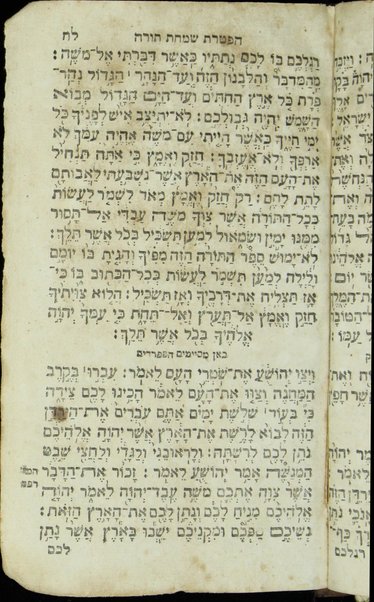 הפטרת שמחת תורה לח
רַגְלְכֶם בּוֹ לָכֶם נְתַתִּיו כַּאֲשֶׁר דִּבַּרְתִּי אֶל־מֹשֶׁה׃
מֵהַמִּדְבָּר וְהַלְּבָנוֹן הַזֶּה וְעַד־הַנָּהָר הַגָּדוֹל נְהַר־
פְּרָת כֹּל אֶרֶץ הַחִתִּים וְעַד־הַיָּם הַגָּדוֹל מְבוֹא
הַשָּׁמֶשׁ יִהְיֶה גְּבוּלְכֶם׃ לֹא־יִתְיַצֵּב אִישׁ לְפָנֶיךָ כֹּל
יְמֵי חַיֶּיךָ כַּאֲשֶׁר הָיִיתִי עִם־מֹשֶׁה אֶהְיֶה עִמָּךְ לֹא
אַרְפְּךָ וְלֹא אֶעֶזְבֶךָּ׃ חֲזַק וֶאֱמָץ כִּי אַתָּה תַּנְחִיל
אֶת־הָעָם הַזֶּה אֶת־הָאָרֶץ אֲשֶׁר־נִשְׁבַּעְתִּי לַאֲבוֹתָם
לָתֵת לָהֶם׃ רַק חֲזַק וֶאֱמַץ מְאֹד לִשְׁמֹר לַעֲשׂוֹת
כְּכָל־הַתּוֹרָה אֲשֶׁר צִוְּךָ מֹשֶׁה עַבְדִּי אַל־תָּסוּר
מִמֶּנּוּ יָמִין וּשְׂמֹאול לְמַעַן תַּשְׂכִּיל בְּכֹל אֲשֶׁר תֵּלֵךְ׃
לֹא־יָמוּשׁ סֵפֶר הַתּוֹרָה הַזֶּה מִפִּיךָ וְהָגִיתָ בּוֹ יוֹמָם
וָלַיְלָה לְמַעַן תִּשְׁמֹר לַעֲשׂוֹת כְּכָל־הַכָּתוּב בּוֹ כִּי־
אָז תַּצְלִיחַ אֶת־דְּרָכֶיךָ וְאָז תַּשְׂכִּיל׃ הֲלוֹא צִוִּיתִיךָ
חֲזַק וֶאֱמָץ אַל־תַּעֲרֹץ וְאַל־תֵּחָת כִּי עִמְּךָ יְהוָֹה
אֱלֹהֶיךָ בְּכֹל אֲשֶׁר תֵּלֵךְ׃
כאן מסיימים הספרדים
וַיְצַו יְהוֹשֻׁעַ אֶת־שֹׁטְרֵי הָעָם לֵאמֹר׃ עִבְרוּ בְּקֶרֶב
הַמַּחֲנֶה וְצַוּוּ אֶת־הָעָם לֵאמֹר הָכִינוּ לָכֶם צֵידָה
כִּי בְּעוֹד שְׁלֹשֶׁת יָמִים אַתֶּם עֹבְרִים אֶת־הַיַּרְדֵּן
הַזֶּה לָבוֹא לָרֶשֶׁת אֶת־הָאָרֶץ אֲשֶׁר יְהוָֹה אֱלֹהֵיכֶם
נֹתֵן לָכֶם לְרִשְׁתָּהּ׃ וְלָראוּבֵנִי וְלַגָּדִי וְלַחֲצִי שֵׁבֶט
הַמְנַשֶּׁה אָמַר יְהוֹשֻׁעַ לֵאמֹר׃ זָכוֹר אֶת־הַדָּבָר
אֲשֶׁר צִוָּה אֶתְכֶם מֹשֶׁה עֶבֶד־יְהוָֹה לֵאמֹר יְהוָֹה
אֱלֹהֵיכֶם מֵנִיחַ לָכֶם וְנָתַן לָכֶם אֶת־הָאָרֶץ הַזֹּאת׃
נְשֵׁיכֶם טַפְּכֶם וּמִקְנֵיכֶם יֵשְׁבוּ בָּאָרֶץ אֲשֶׁר נָתַן
לכם
רגלכם